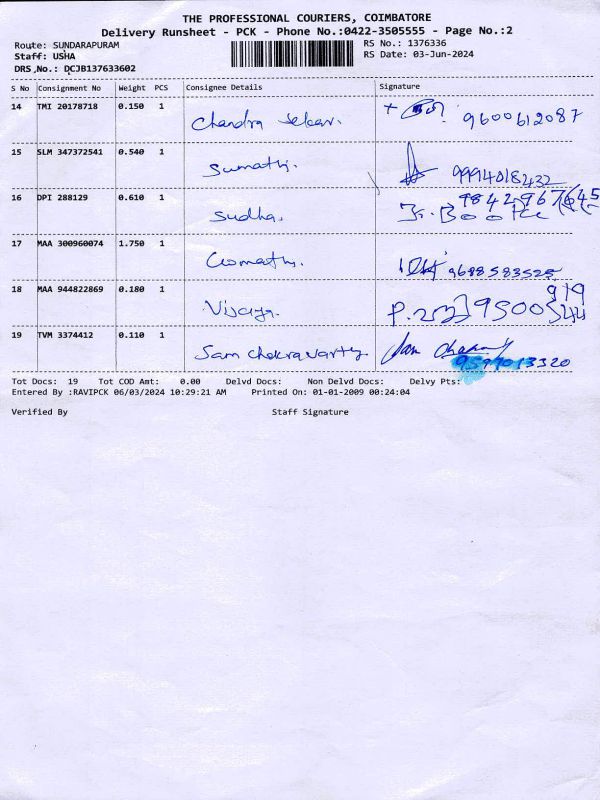 THE PROFESSIONAL COURIERS, COIMBATORE
Delivery Runsheet - PCK - Phone No.:0422-3505555 - Page No.:2
Route: SUNDARAPURAM RS No.: 1376336
Staff: USHA RS Date: 03-Jun-2024
DRS No.: DCJB137633602
S No Consignment No Weight PCS Consignee Details Signature
14 TMI 20178718 0.150 1 Chandra Sekar. 9600612087
15 SLM 347372541 0.540 1 Sumathi. 9994018432
16 DPI 288129 0.610 1 Sudha.
17 MAA 300960074 1.750 1 Gomathi. 9688583525
18 MAA 944822869 0.180 1 Vijaya.
19 TVM 3374412 0.110 1 Sam Chakravarthy
Tot Docs: 19 Tot COD Amt: 0.00 Delvd Docs: Non Delvd Docs: Delvy Pts:
Entered By :RAVIPCK 06/03/2024 10:29:21 AM Printed On: 01-01-2009 00:24:04
Verified By Staff Signature